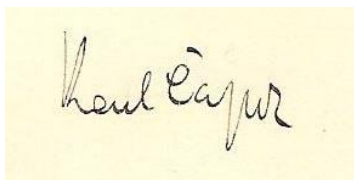 Karel Čapek